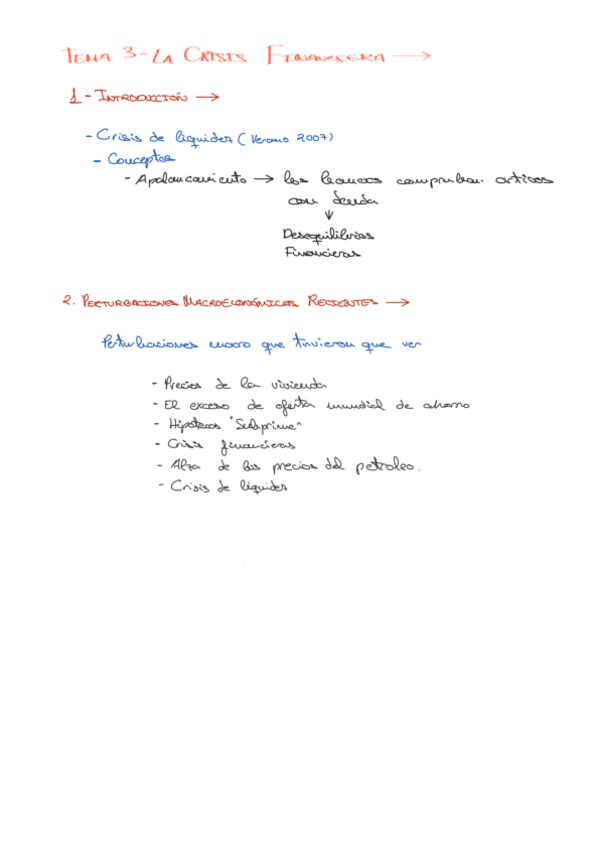 TEMA 3 - LA CRISIS FINANCIERA →
1 - INTRODUCCIÓN →
- Crisis de liquidez (Verano 2007)
- Conceptos
- Apalancamiento → los bancos compraban activos
con deuda
↓
Desequilibrios
Financieros
2. PERTURBACIONES MACROECONÓMICAS RECIENTES →
Perturbaciones macro que tuvieron que ver
- Precios de la vivienda
- El exceso de oferta mundial de ahorro
- Hipotecas "Subprime"
- Crisis financieras
- Alza de los precios del petroleo.
- Crisis de liquidez